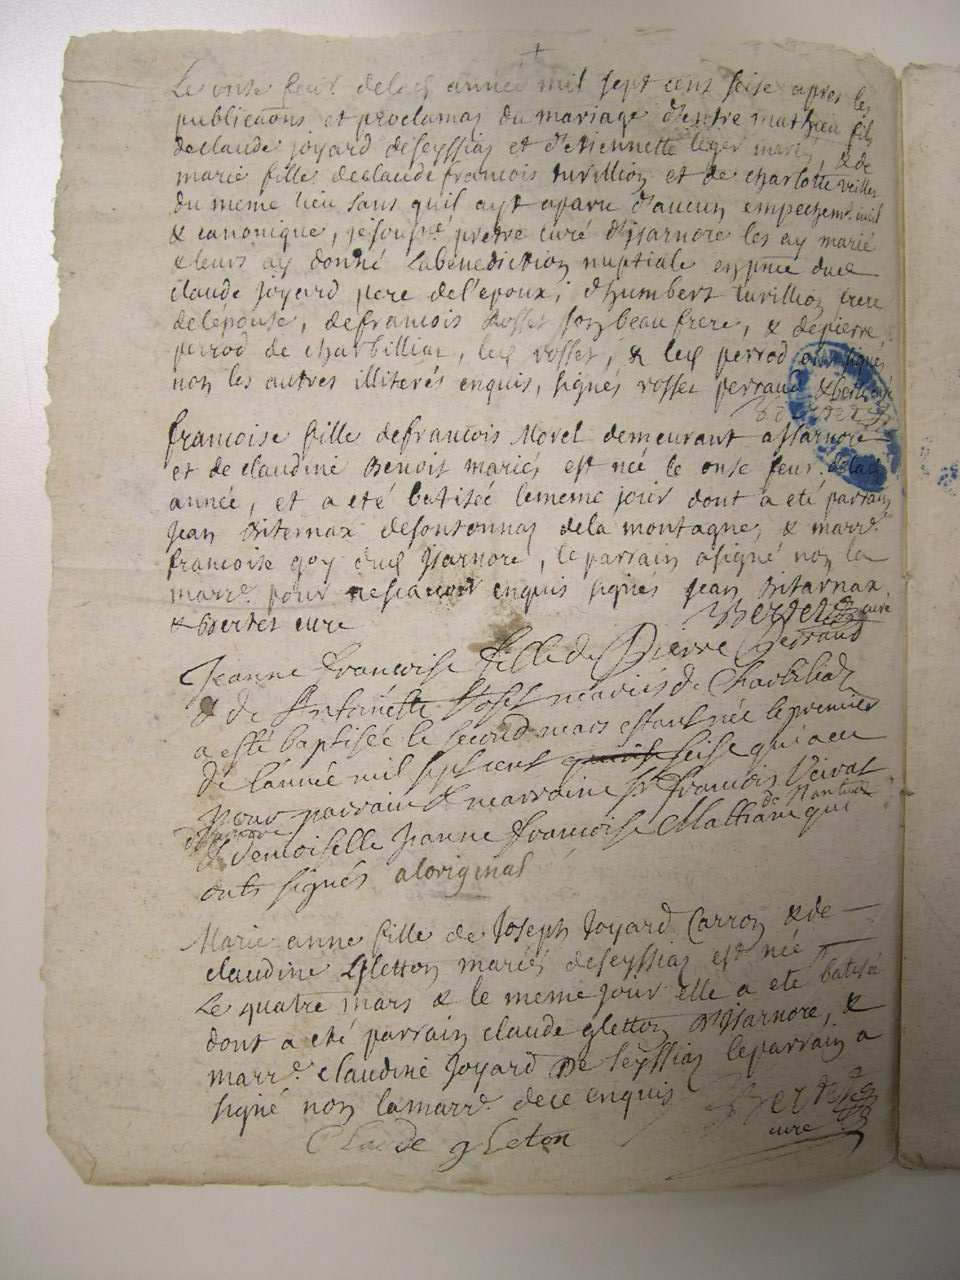 Le onse feur. delad. année mil sept cent seise apres les
publicaōns et proclamaōs du mariage d'entre mathieu fils
declaude joyard deseyssias et d'etiennette leger mariés, & de
marie fille declaude francois turillion et de charlotte
du meme lieu sans quil ayt aparu d'aucun empechemt. civil
& canonique, je sousné. pretre curé d'Isarnore les ay marié
& leurs ay donné la benediction nuptiale en pnce dud.
claude joyard pere de l'epoux, d'humbert turillion frere
delepouse, defrancois Rosset son beau frere, & depierre
perrod de charbilliat, led. rosset, & led. perrod ont signés
non les autres illiterés enquis, signés rosset perraud &
francoise fille defrancois Morel demeurant a Isarnore
et de claudine Benoit mariés est née le onse feur. delad.
année, et a eté batisée lememe jour dont a eté parrain
jean Biternax desontonnas dela montagne, & marre.
francoise goy dud. Isarnore, le parrain a signé non la
marre. pour ne scavoir enquis signés jean Bitarnax
& Bertet curé
Bertet curé
Jeanne francoise fille de Pierre Perraud
& de Antoinette Roset mariés de Charbiliat
a esté baptisée le second mars estant née le premier
de l'année mil sept cent seise qui a eu
pour parrain & marraine sr. francois Veivat
d'Isarnore
& demoiselle Jeanne francoise Mathane de Nantua qui
onts signés a loriginal
Marie anne fille de Joseph Joyard Carron & de
claudine Gletton mariés deseyssias est née
Le quatre mars & le meme jour elle a eté batisée
dont a eté parrain claude gletton d'Isarnore, &
marre. claudine Joyard De seyssias le parrain a
signé non lamarre. de ce enquis Bertet
curé
Claude gleton